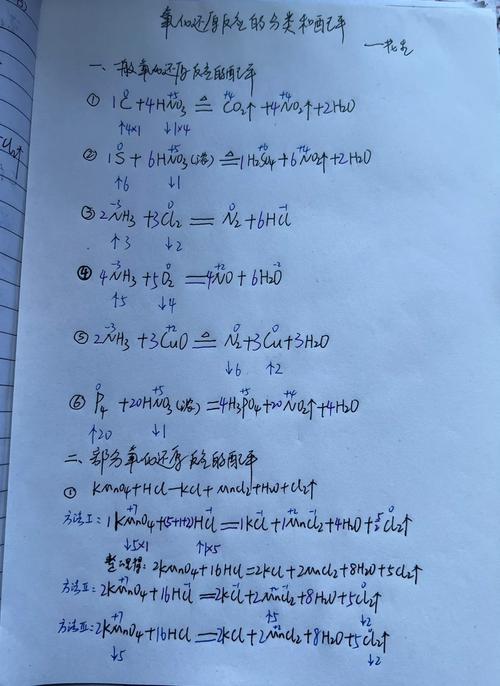 氧化还原反应的分类和配平
一、一般氧化还原反应的配平
① 1C + 4HNO₃ ≜ CO₂↑ + 4NO₂↑ + 2H₂O
0 +5 +4 +4
↑4×1 ↓1×4
② 1S + 6HNO₃(浓) ≜ 1H₂SO₄ + 6NO₂↑ + 2H₂O
0 +5 +6 +4
↑6 ↓1
③ 2NH₃ + 3Cl₂ = N₂ + 6HCl
-3 0 0 -1
↑3 ↓2
④ 4NH₃ + 5O₂ = 4NO + 6H₂O
-3 0 +2 -2
↑5 ↓4
⑤ 2NH₃ + 3CuO ≜ N₂ + 3Cu + 3H₂O
-3 +2 0 0
↓6 ↑2
⑥ P₄ + 20HNO₃(浓) = 4H₃PO₄ + 20NO₂↑ + 4H₂O
0 +5 +5 +4
↑20 ↓1
二、部分氧化还原反应的配平
① KMnO₄ + HCl — KCl + MnCl₂ + H₂O + Cl₂↑
方法I: 1KMnO₄ + (5+1+2)HCl = 1KCl + 1MnCl₂ + 4H₂O + 5/2Cl₂↑
+7 -1 +2 0
↓5×1 ↑1×5
整理得: 2KMnO₄ + 16HCl = 2KCl + 2MnCl₂ + 8H₂O + 5Cl₂↑
方法II: 2KMnO₄ + 16HCl = 2KCl + 2MnCl₂ + 8H₂O + 5Cl₂↑
↑5 ↓2
方法III: 2KMnO₄ + 16HCl = 2KCl + 2MnCl₂ + 8H₂O + 5Cl₂↑
+7 +2 0
↓5 ↓2